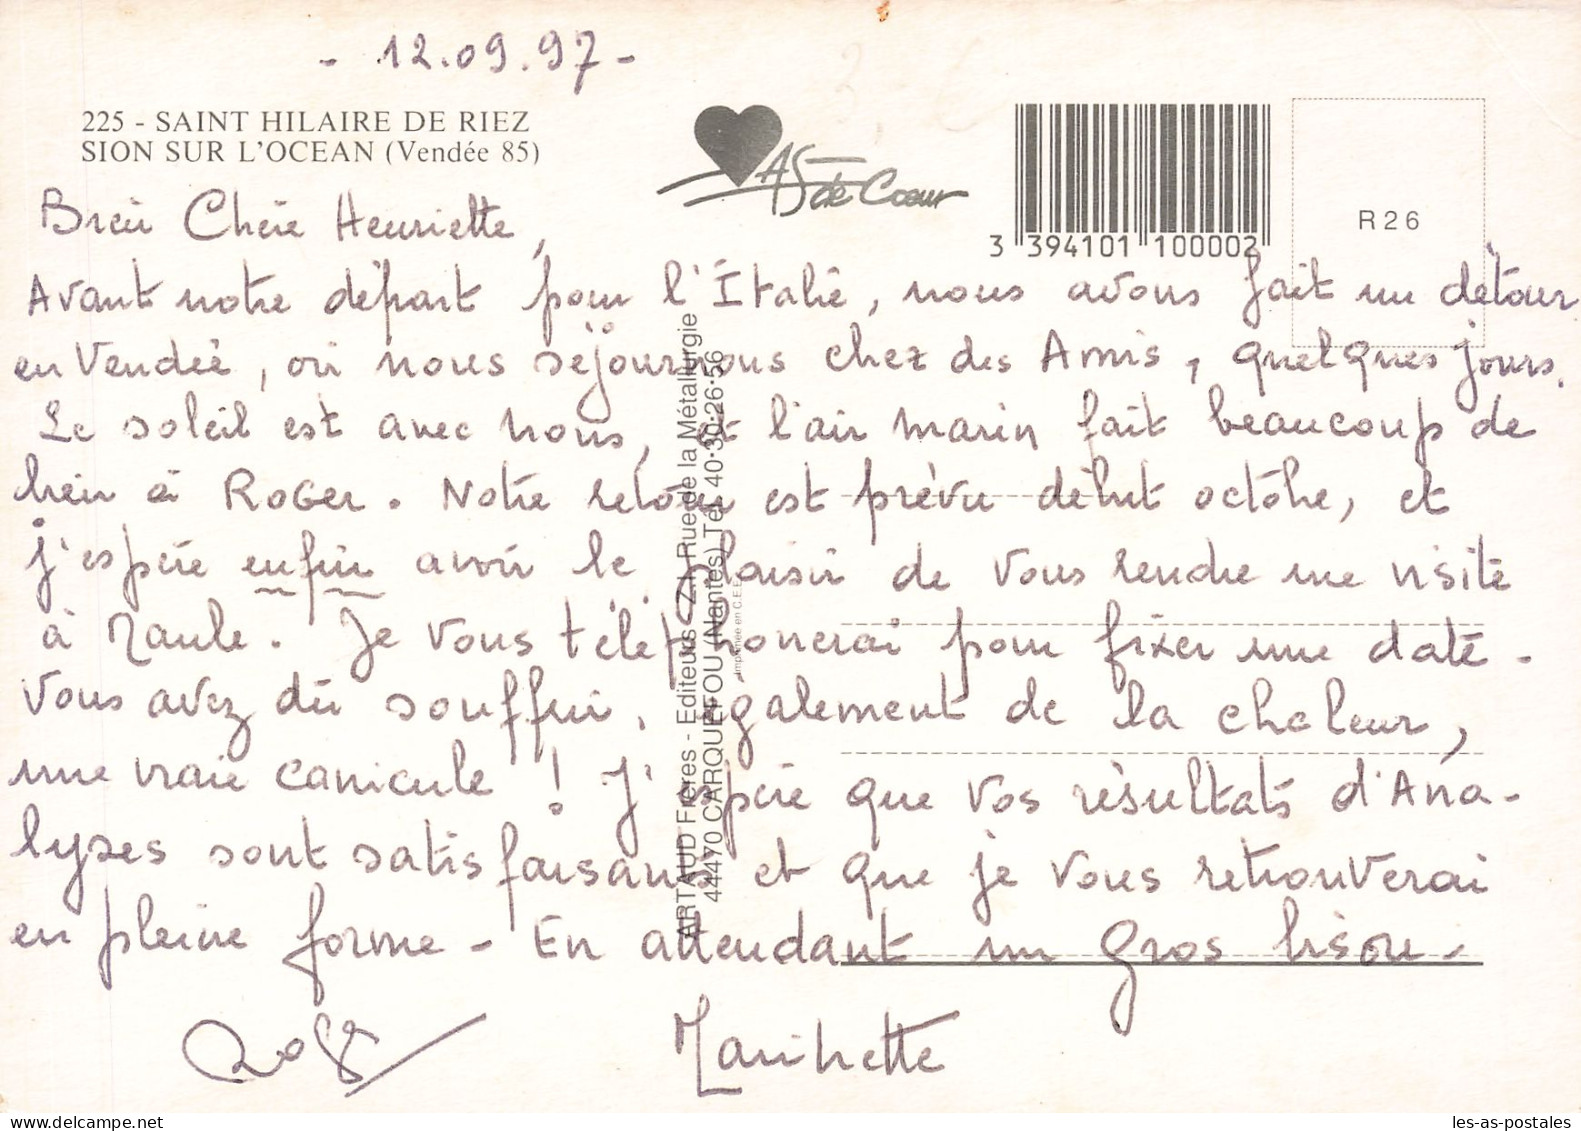 - 12.09.97 -
225 - SAINT HILAIRE DE RIEZ
SION SUR L'OCEAN (Vendée 85)
As de Coeur
3 394101 100002
R26
Bien Chère Henriette,
Avant notre départ pour l'Italie, nous avons fait un détour
en Vendée, où nous séjournons chez des Amis, quelques jours.
Le soleil est avec nous, et l'air marin fait beaucoup de
bien à Roger. Notre retour est prévu début octobre, et
j'espère enfin avoir le plaisir de vous rendre une visite
à Maule. Je vous téléphonerai pour fixer une date.
Vous avez dû souffrir, également de la chaleur,
une vraie canicule ! J'espère que vos résultats d'Ana-
lyses sont satisfaisants et que je vous retrouverai
en pleine forme - En attendant un gros bisou -
Marinette
ARTAUD Frères - Editeurs - Z.I. Rue de la Métallurgie
44470 CARQUEFOU (Nantes) Tél. 40·30·26·56
Imprimée en C.E.E.
les-as-postales